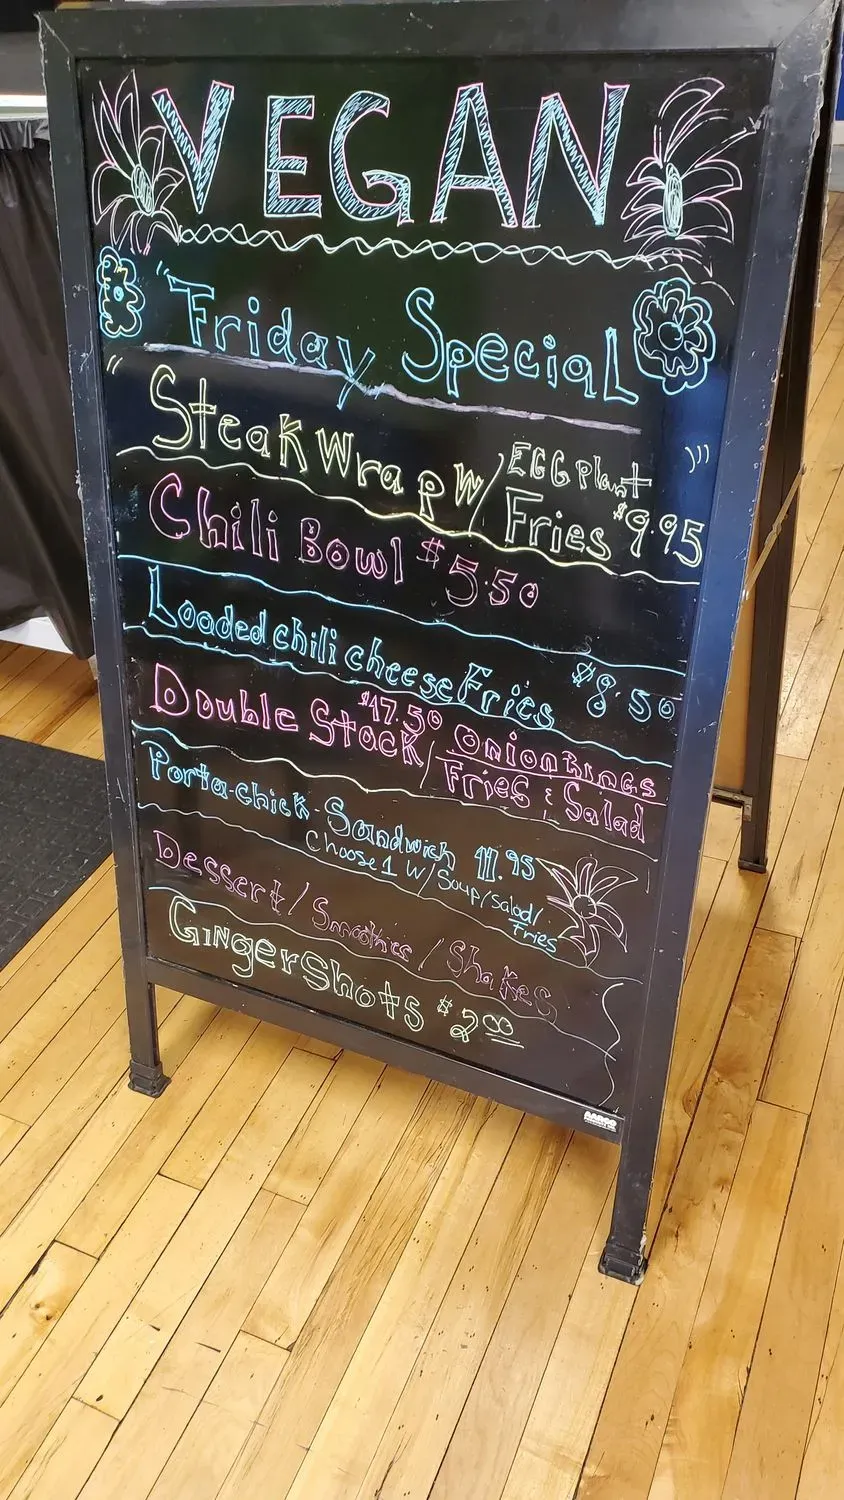 VEGAN
"Friday Special
" Steak Wrap w/ EGGplant Fries $9.95 "
Chili Bowl $5.50
Loaded chili cheese Fries $8.50
Double Stack $17.50 / Onion Rings Fries & Salad
Porta-chick-Sandwich 11.95
Choose 1 w/Soup/Salad/Fries
Dessert/Smoothies/Shakes
GINGerShots $2.00